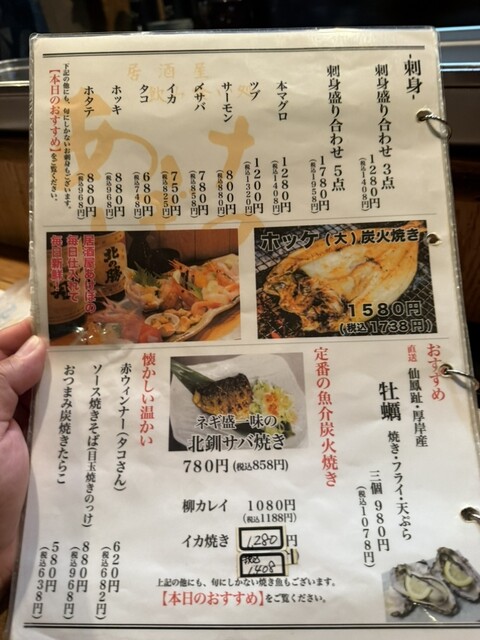 -刺身-
刺身盛り合わせ 3点
1280円
(税込1408円)
刺身盛り合わせ 5点
1780円
(税込1958円)
本マグロ
1280円
(税込1408円)
ツブ
1200円
(税込1320円)
サーモン
800円
(税込880円)
〆サバ
780円
(税込858円)
イカ
750円
(税込825円)
タコ
680円
(税込748円)
ホッキ
880円
(税込968円)
ホタテ
880円
(税込968円)
下記の他にも、旬にしかないお刺身もございます。
【本日のおすすめ】をご覧ください。
居酒屋
あけぼの
北の勝
居酒屋あけぼの
毎日仕入れで
毎日新鮮!
ホッケ(大)炭火焼き
1580円
(税込1738円)
おすすめ
直送 仙鳳趾・厚岸産
牡蠣 焼き・フライ・天ぷら
三個 980円
(税込1078円)
定番の魚介炭火焼き
ネギ盛一味の
北釧サバ焼き
780円(税込858円)
柳カレイ 1080円
(税込1188円)
イカ焼き 1280円
税込
1408
上記の他にも、旬にしかない焼き魚もございます。
【本日のおすすめ】をご覧ください。
懐かしい温かい
赤ウィンナー(タコさん)
620円
(税込682円)
ソース焼きそば(目玉焼きのっけ)
880円
(税込968円)
おつまみ炭焼きたらこ
580円
(税込638円)